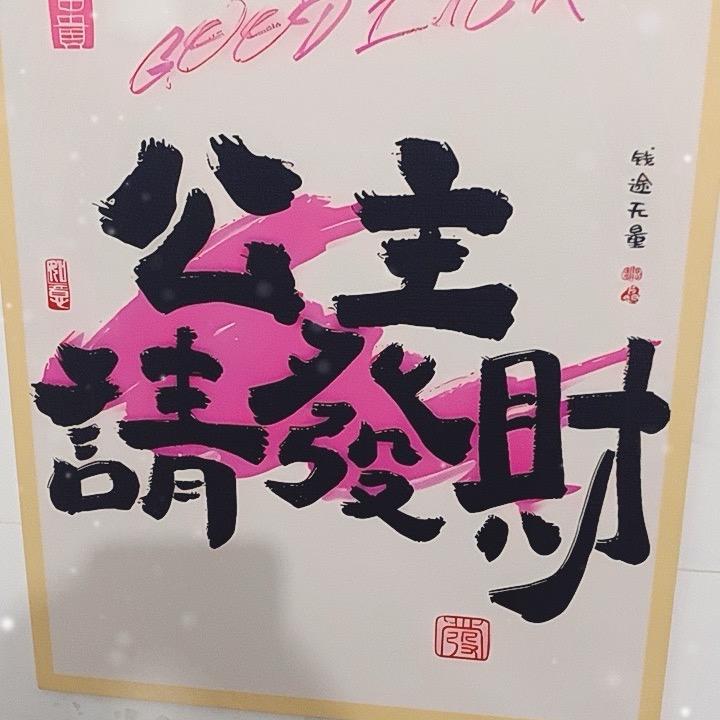 GOOD LUCK
公主
請發財
钱途无量
如意